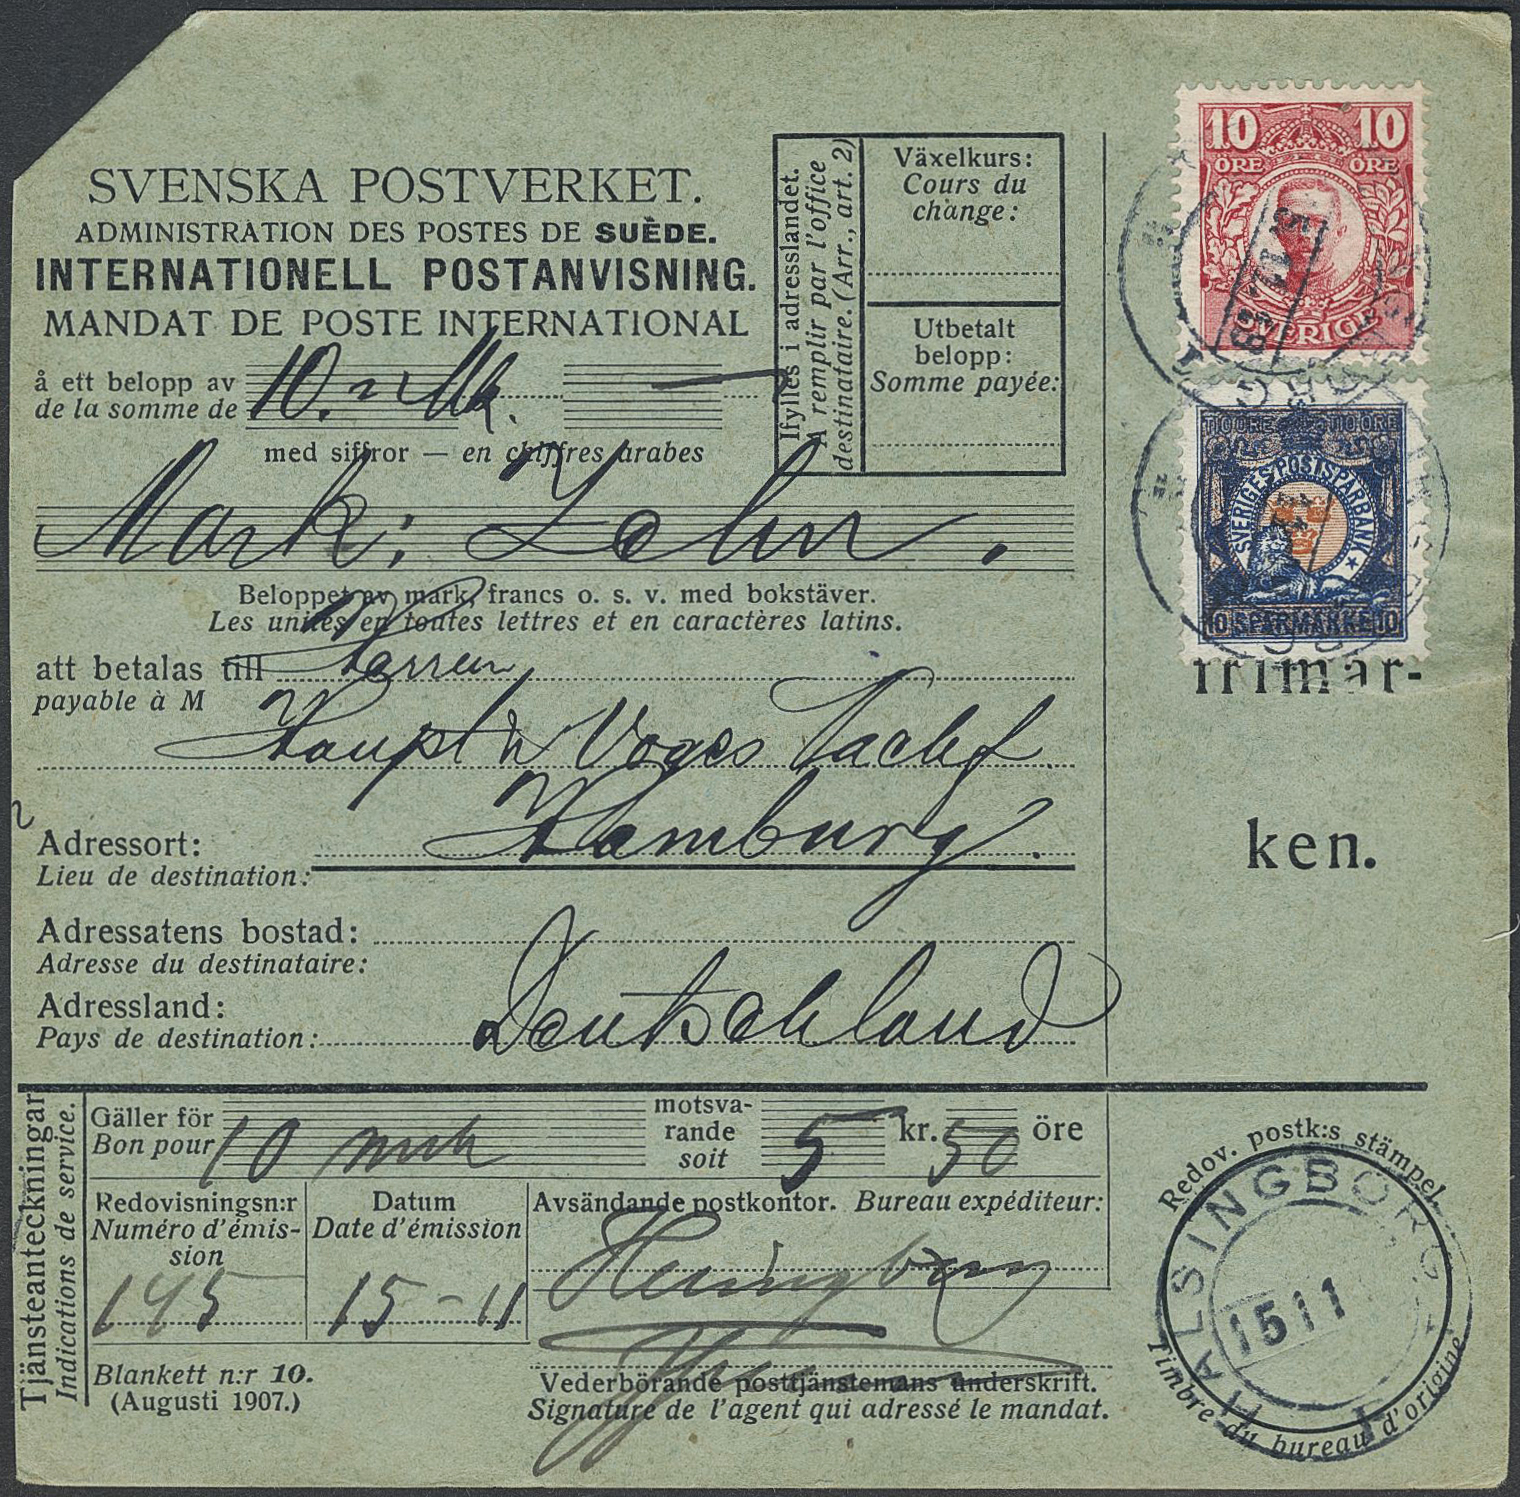 SVENSKA POSTVERKET.
ADMINISTRATION DES POSTES DE SUÈDE.
INTERNATIONELL POSTANVISNING.
MANDAT DE POSTE INTERNATIONAL
å ett belopp av
de la somme de
10. Mk.
med siffror — en chiffres arabes
Mark: Zehn.
Beloppet av mark, francs o. s. v. med bokstäver.
Les unités en toutes lettres et en caractères latins.
att betalas till Herren
payable à M
Haupt & Voges Nachf.
Adressort: Hamburg.
Lieu de destination:
Adressatens bostad:
Adresse du destinataire:
Adressland: Deutschland
Pays de destination:
Ifylles i adresslandet.
A remplir par l'office
destinataire. (Arr., art. 2)
Växelkurs:
Cours du
change:
Utbetalt
belopp:
Somme payée:
10 10
ÖRE ÖRE
SVERIGE
TIO ÖRE TIO ÖRE
SVERIGES POSTSPARBANK
10 SPARMÄRKE 10
frimär-
ken.
Tjänsteanteckningar
Indications de service.
Gäller för
Bon pour
10 mrk
motsva-
rande
soit
5 kr. 50 öre
Redovisningsn:r
Numéro d'émis-
sion
145
Datum
Date d'émission
15-11
Avsändande postkontor. Bureau expéditeur:
Helsingborg
Vederbörande posttjänstemans underskrift.
Signature de l'agent qui adressé le mandat.
Blankett n:r 10.
(Augusti 1907.)
Redov. postk:s stämpel.
HÄLSINGBORG 1
15 11
Timbre du bureau d'origine.